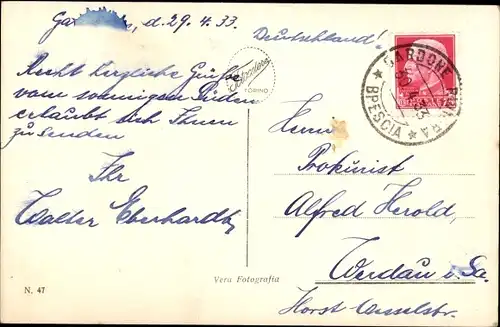 d. 29. 4. 33.
Deutschland!
Recht herzliche Grüße
vom sonnigen Süden
erlaubt sich Ihnen
zu senden
Ihr
Walter Eberhardt
TORINO
GARDONE RIVIERA
30.4.33
* BRESCIA *
Herrn
Prokurist
Alfred Herold,
Werdau i. Sa.
Horst-Wesselstr.
Vera Fotografia
N. 47